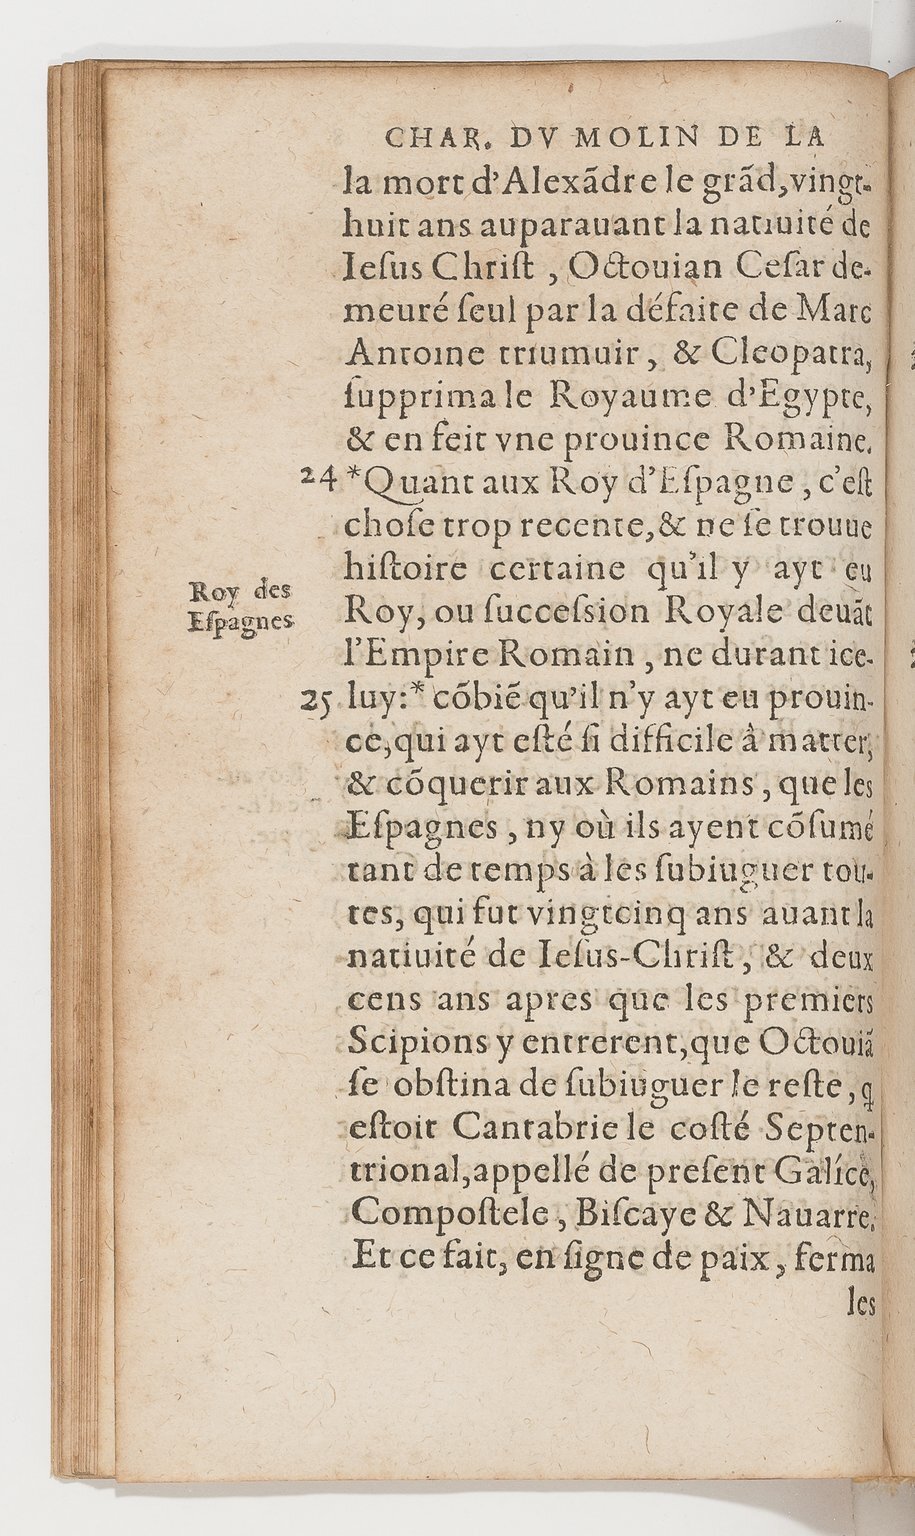 CHAR. DV MOLIN DE LA
la mort d'Alexãdre le grãd, vingt-
huit ans auparauant la natiuité de
Iesus Christ , Octouian Cesar de-
meuré seul par la défaite de Marc
Antoine triumuir, & Cleopatra,
supprima le Royaume d'Egypte,
& en feit vne prouince Romaine.
24 *Quant aux Roy d'Espagne , c'est
chose trop recente, & ne se trouue
histoire certaine qu'il y ayt eu
Roy des
Espagnes
Roy, ou succession Royale deuãt
l'Empire Romain , ne durant ice-
25 luy:* cõbiẽ qu'il n'y ayt eu prouin-
ce, qui ayt esté si difficile à matter,
& cõquerir aux Romains , que les
Espagnes , ny où ils ayent cõsumé
tant de temps à les subiuguer tou-
tes, qui fut vingtcinq ans auant la
natiuité de Iesus-Christ , & deux
cens ans apres que les premiers
Scipions y entrerent, que Octouiã
se obstina de subiuguer le reste , q̃
estoit Cantabrie le costé Septen-
trional, appellé de present Galíce,
Compostele , Biscaye & Nauarre.
Et ce fait, en signe de paix , ferma
les